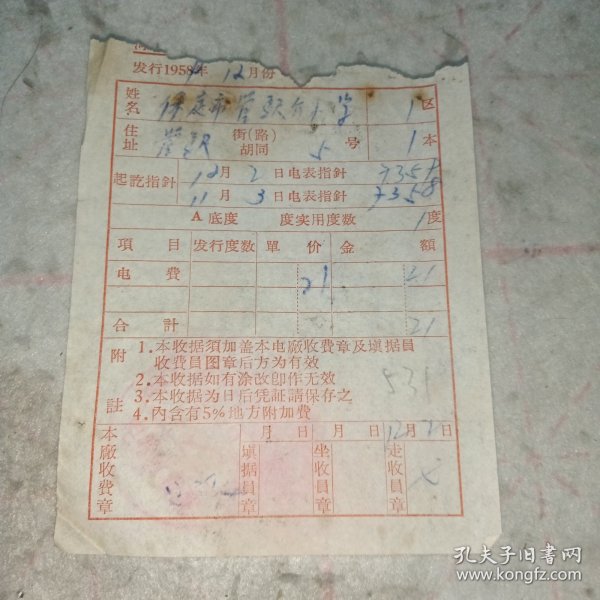 发行1958年 12月份
姓名 保定市管驭分小学 1区
住址 管驭 街(路)胡同 5号 1本
起訖指針 12月2日电表指針
11月3日电表指針 7358
A 底度 度实用度数 1度
項目 发行度数 單价 金額
电費 21 21
合計 21
附註
1.本收据須加盖本电廠收費章及塡据員
收費員图章后方为有效
2.本收据如有涂改卽作无效
3.本收据为日后凭証請保存之
4.內含有5%地方附加費
531
月 日 月 日 12月2日
本廠收費章 塡据員章 坐收員章 走收員章
孔夫子旧书网
www.kongfz.com